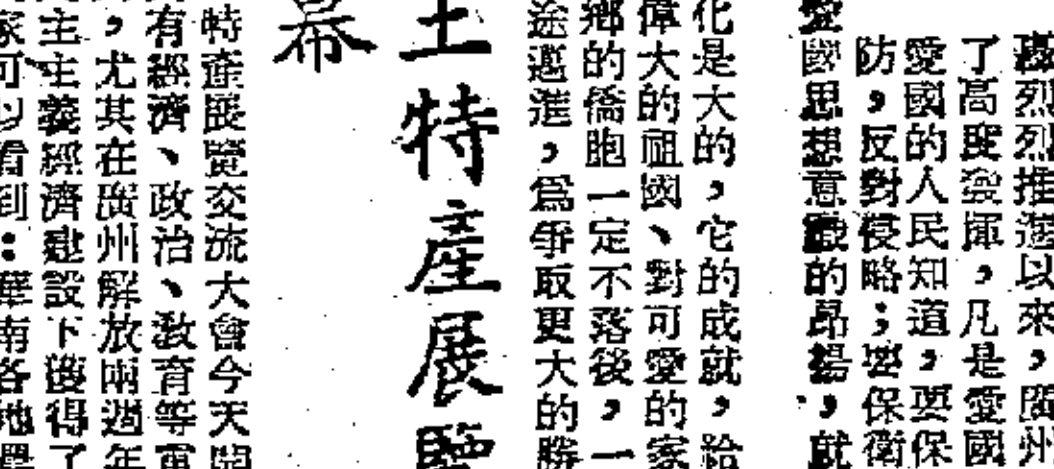 烈烈推進以來，
了高度發揮，凡是愛國
愛國的人民知道，要保
防，反對侵略；要保衛
愛國思想意識的昂揚，就
化是大的，它的成就，給
偉大的祖國、對可愛的家
鄉的僑胞一定不落後，一
途邁進，爲爭取更大的勝
土特產展覽
幕
特產展覽交流大會今天開
有經濟、政治、教育等
，尤其在廣州解放兩週年
主主義經濟建設下獲得了
家可以看到：華南各地